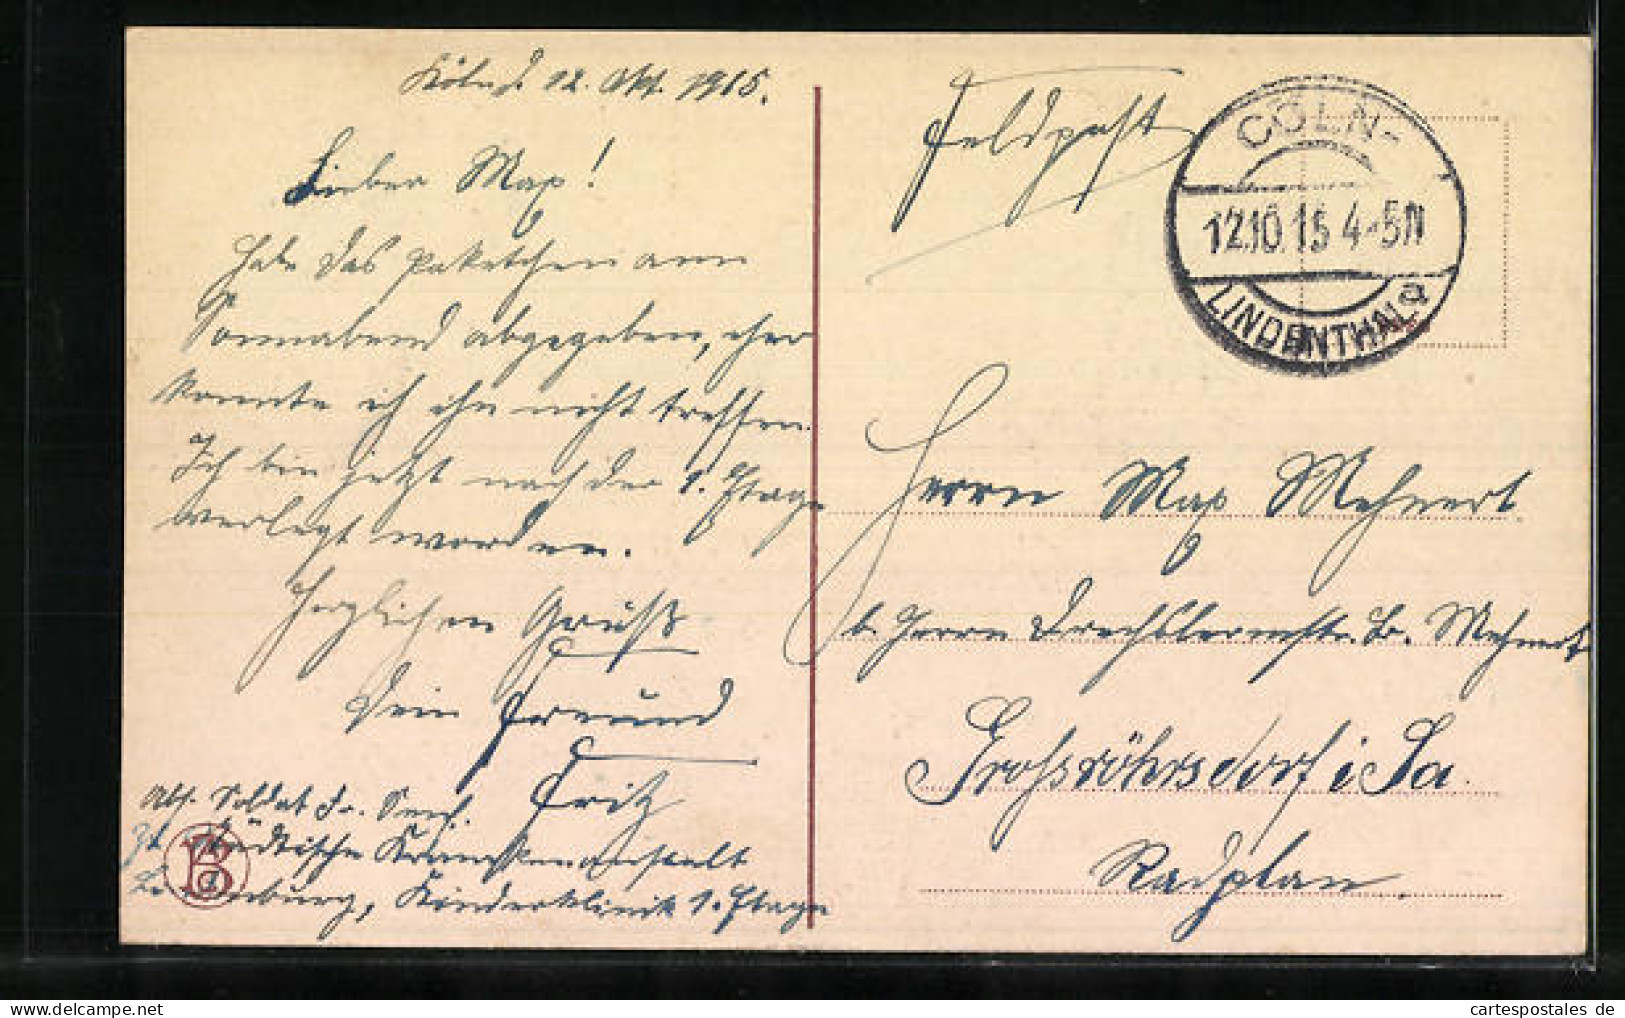 Köln d. 12. Okt. 1915.
Lieber Max!
Habe das Paketchen am
Sonnabend abgegeben, eher
konnte ich ihn nicht treffen.
Ich bin jetzt nach der 1. Etage
verlegt worden.
Herzlichen Gruß
Dein Freund
Fritz
Abs. Soldat Fr.
städtische Krankenanstalt
Lindenburg, Kinderklinik 1. Etage
B
Feldpost
CÖLN-
12.10.15 4-5N
LINDENTHAL a
Herrn Max Mehnert
b. Herrn Drechslermstr. Br. Mehnert
Großröhrsdorf i Sa.
Radplan.
cartespostales de